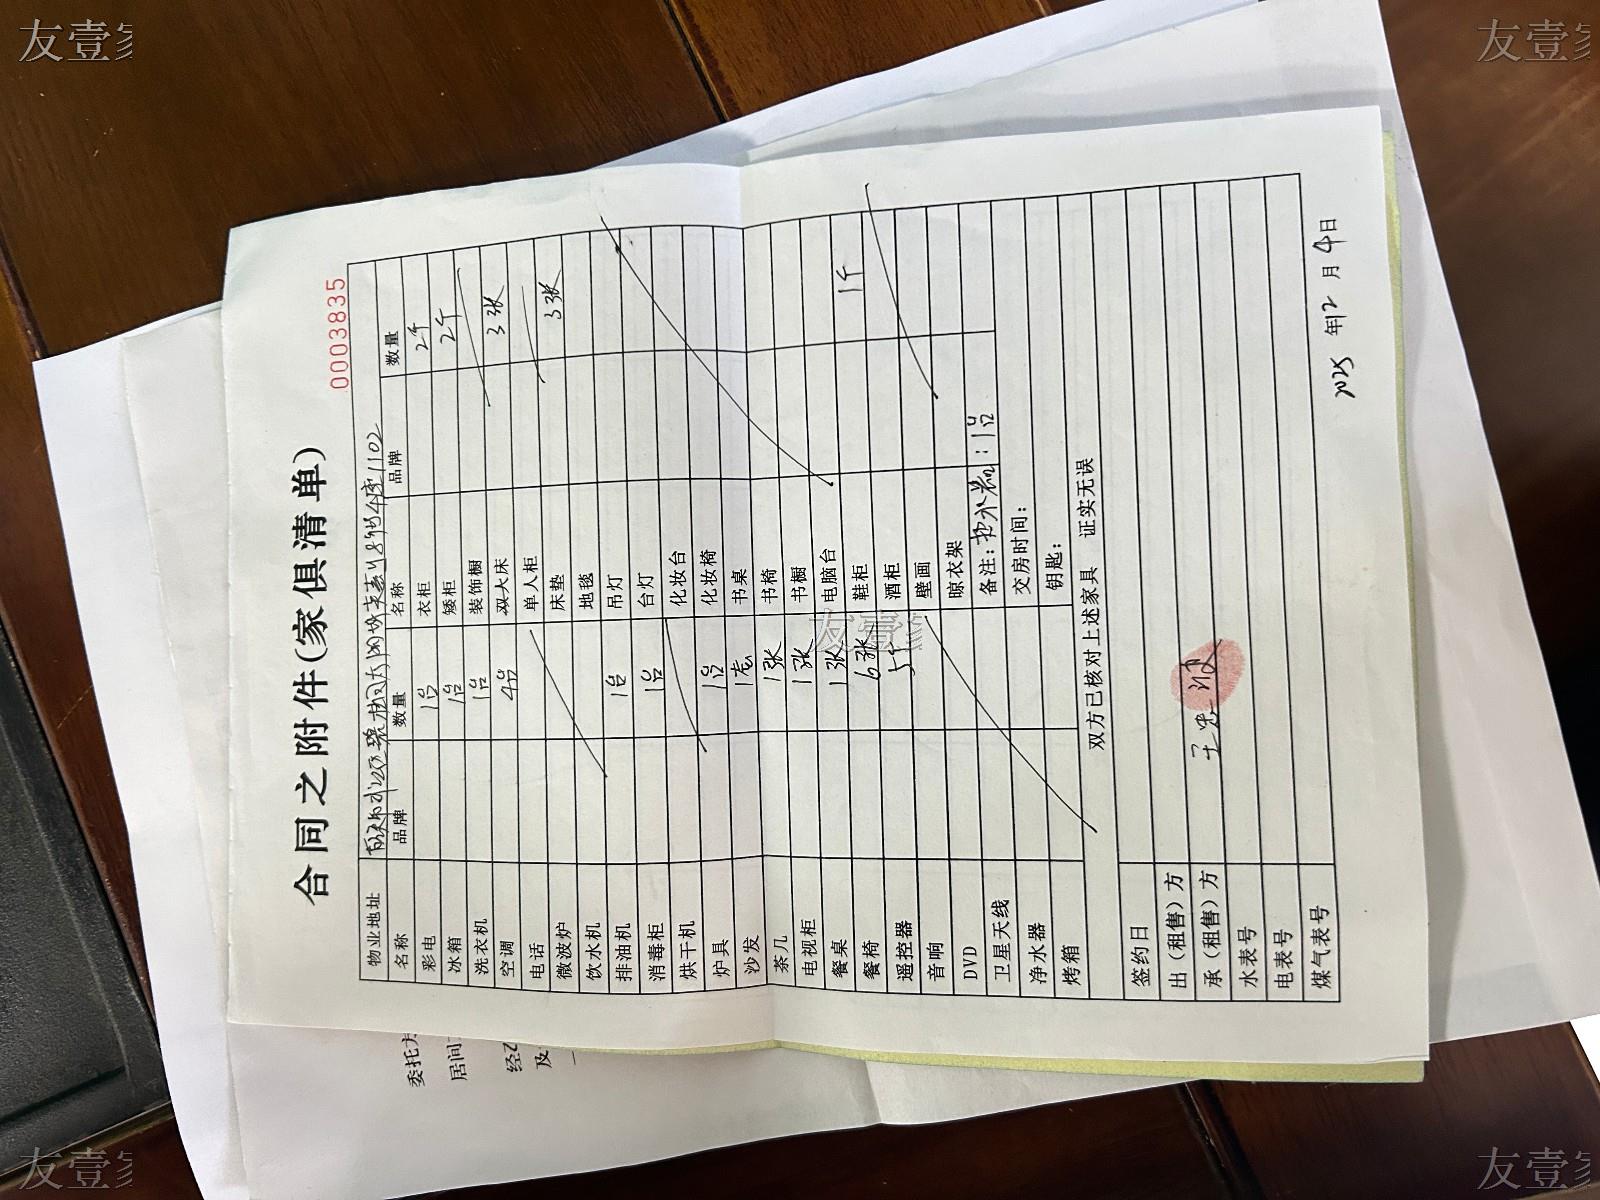 0003835
合同之附件(家俱清单)
物业地址 4座1102
名称 品牌 数量 名称 品牌 数量
彩电 1台 衣柜 2个
冰箱 1台 矮柜 2个
洗衣机 1台 装饰橱
空调 4台 双大床 3张
电话 单人柜
微波炉 床垫 3张
饮水机 地毯
排油机 1台 吊灯
消毒柜 1台 台灯
烘干机 化妆台
炉具 1台 化妆椅
沙发 1套 书桌
茶几 1张 书椅
电视柜 1张 书橱
餐桌 1张 电脑台
餐椅 6张 鞋柜 1个
遥控器 5个 酒柜
音响 壁画
DVD 晾衣架
卫星天线 备注:热水器:1台
净水器 交房时间:
烤箱 钥匙:
双方已核对上述家具 证实无误
签约日
出（租售）方
承（租售）方
水表号
电表号
煤气表号
2025年12月4日
委托方
居间
经
及
友壹家
友壹家
友壹家
友壹家
友壹家